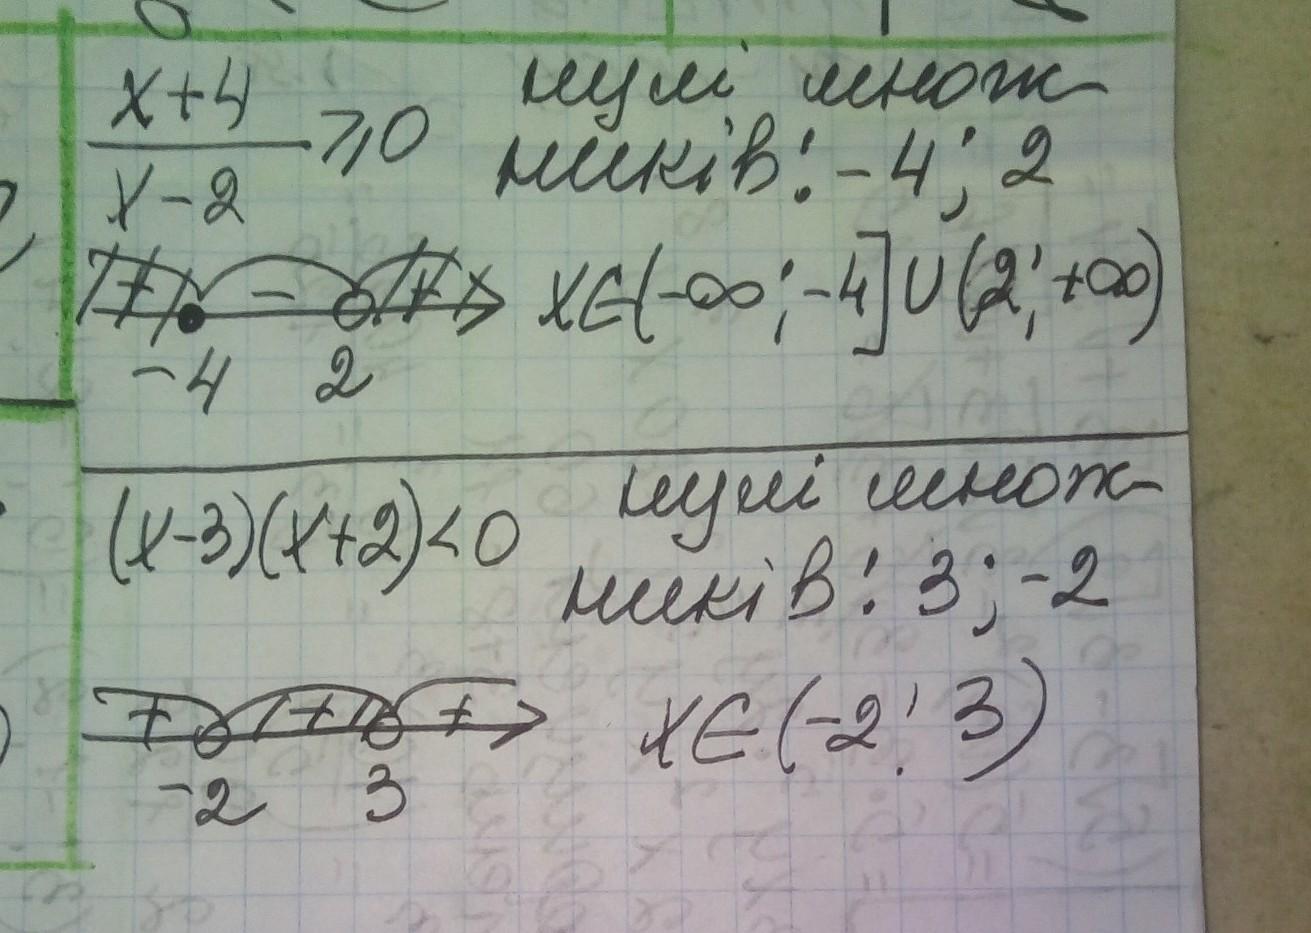 x+4
───── ⩾0
x-2
нулі множ-
ників: -4; 2
+ - +
-4 2
x∈(-∞; -4]∪(2; +∞)
(x-3)(x+2)<0
нулі множ-
ників: 3; -2
+ +
-2 3
x∈(-2; 3)